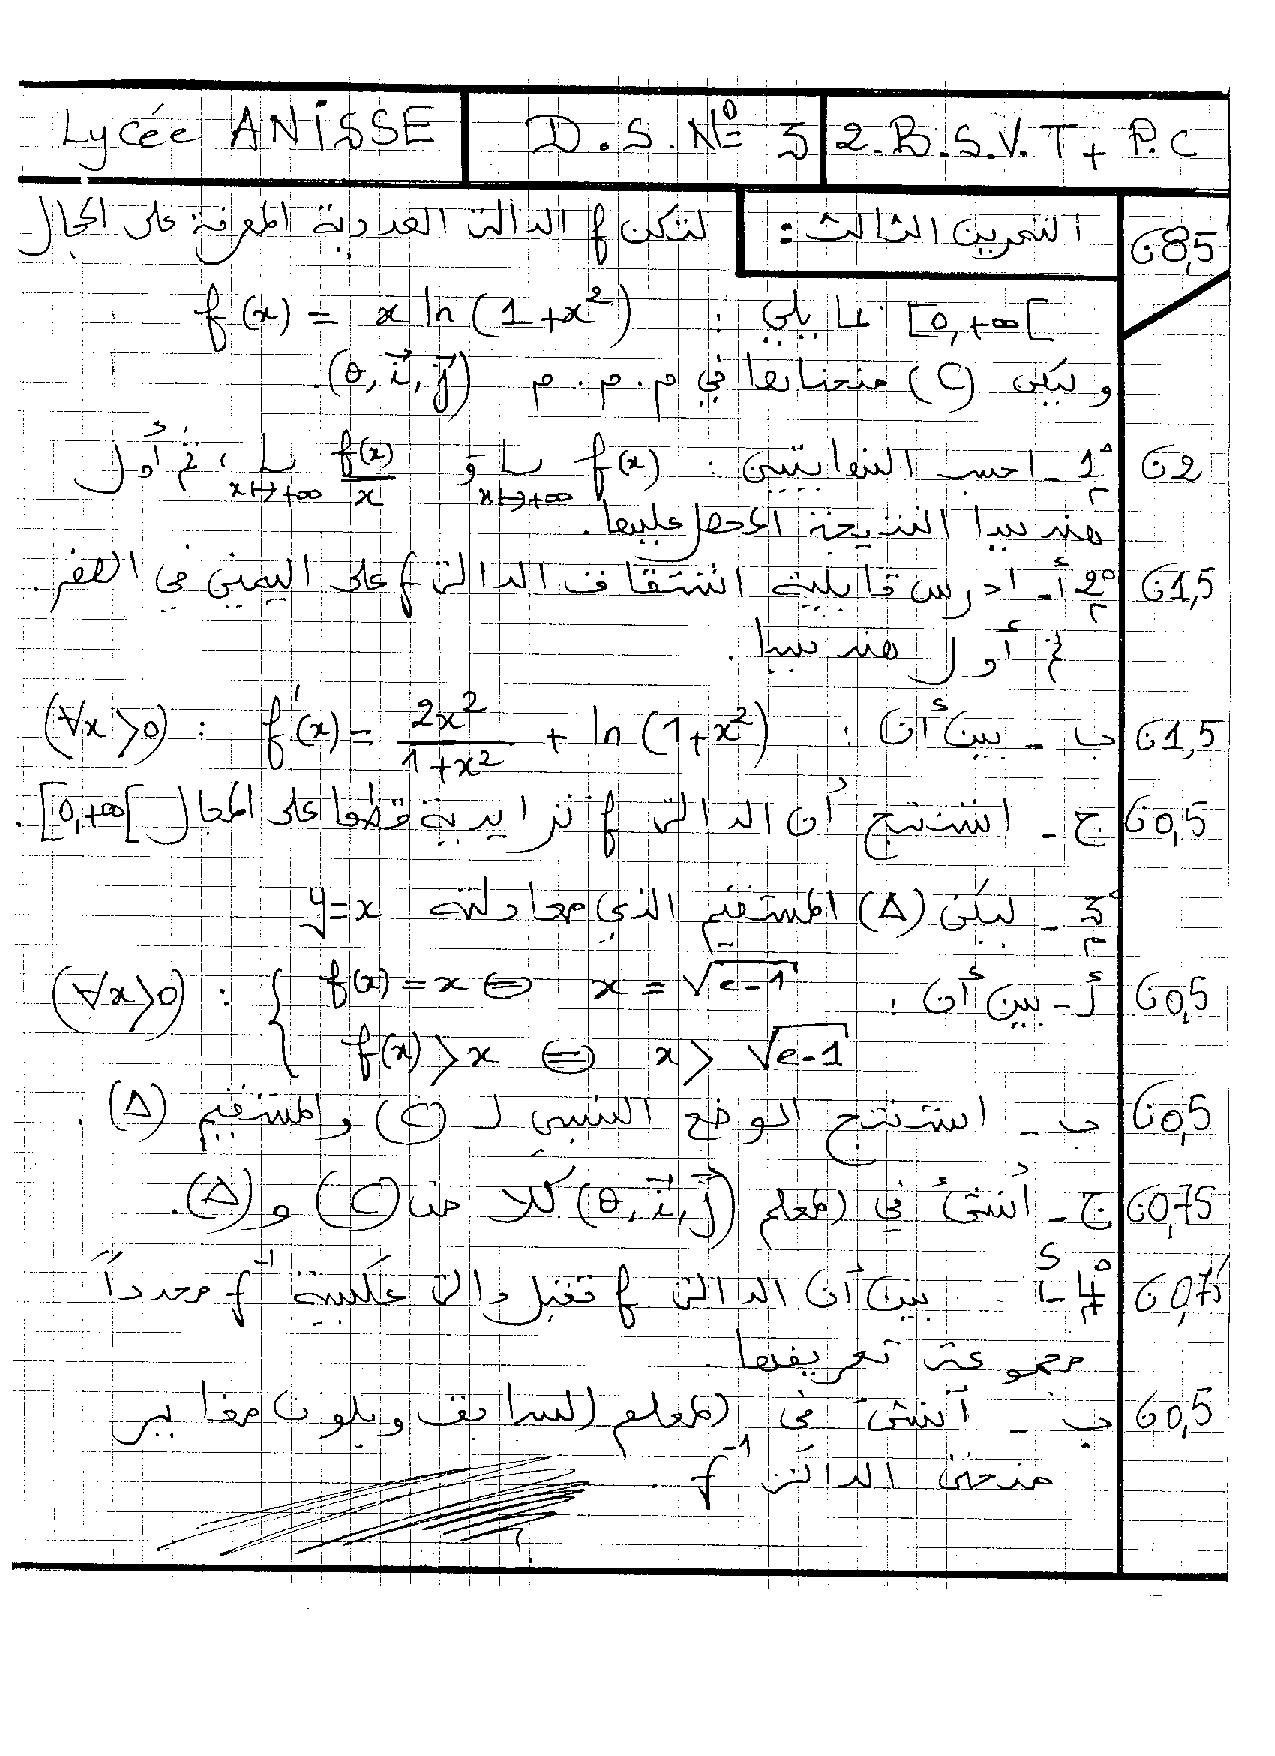 Lycée ANISSE D.S.N° 3 2.B.S.V.T+P.C
التمرين الثالث : لتكن f الدالة العددية المعرفة على المجال ن8,5
[0,+∞[ بما يلي : f(x) = x ln(1+x²)
وليكن (C) منحناها في م.م.م (O, i⃗, j⃗).
1° - احسب النهايتين : L f(x) x→+∞ و L f(x)/x x→+∞ ، ثم أول ن2
هندسيا النتيجة المحصل عليها.
2° أ- ادرس قابلية اشتقاق الدالة f على اليمين في الصفر. ن1,5
ثم أول هندسيا.
ب - بين أن : f'(x) = 2x²/(1+x²) + ln(1+x²) : (∀x>0) ن1,5
ج - استنتج أن الدالة f تزايدية قطعا على المجال [0,+∞[. ن0,5
3° - ليكن (Δ) المستقيم الذي معادلته y=x
أ - بين أن : { f(x) = x ⇔ x = √(e-1) : (∀x>0) ن0,5
f(x) > x ⇔ x > √(e-1)
ب - استنتج الوضع النسبي لـ (C) والمستقيم (Δ). ن0,5
ج - أنشئ في المعلم (O, i⃗, j⃗) كلا من (C) و (Δ). ن0,75
4° أ- بين أن الدالة f تقبل دالة عكسية f⁻¹ محدداً ن0,75
مجموعة تعريفها.
ب - أنشئ في المعلم السابق وبلون مغاير ن0,5
منحنى الدالة f⁻¹